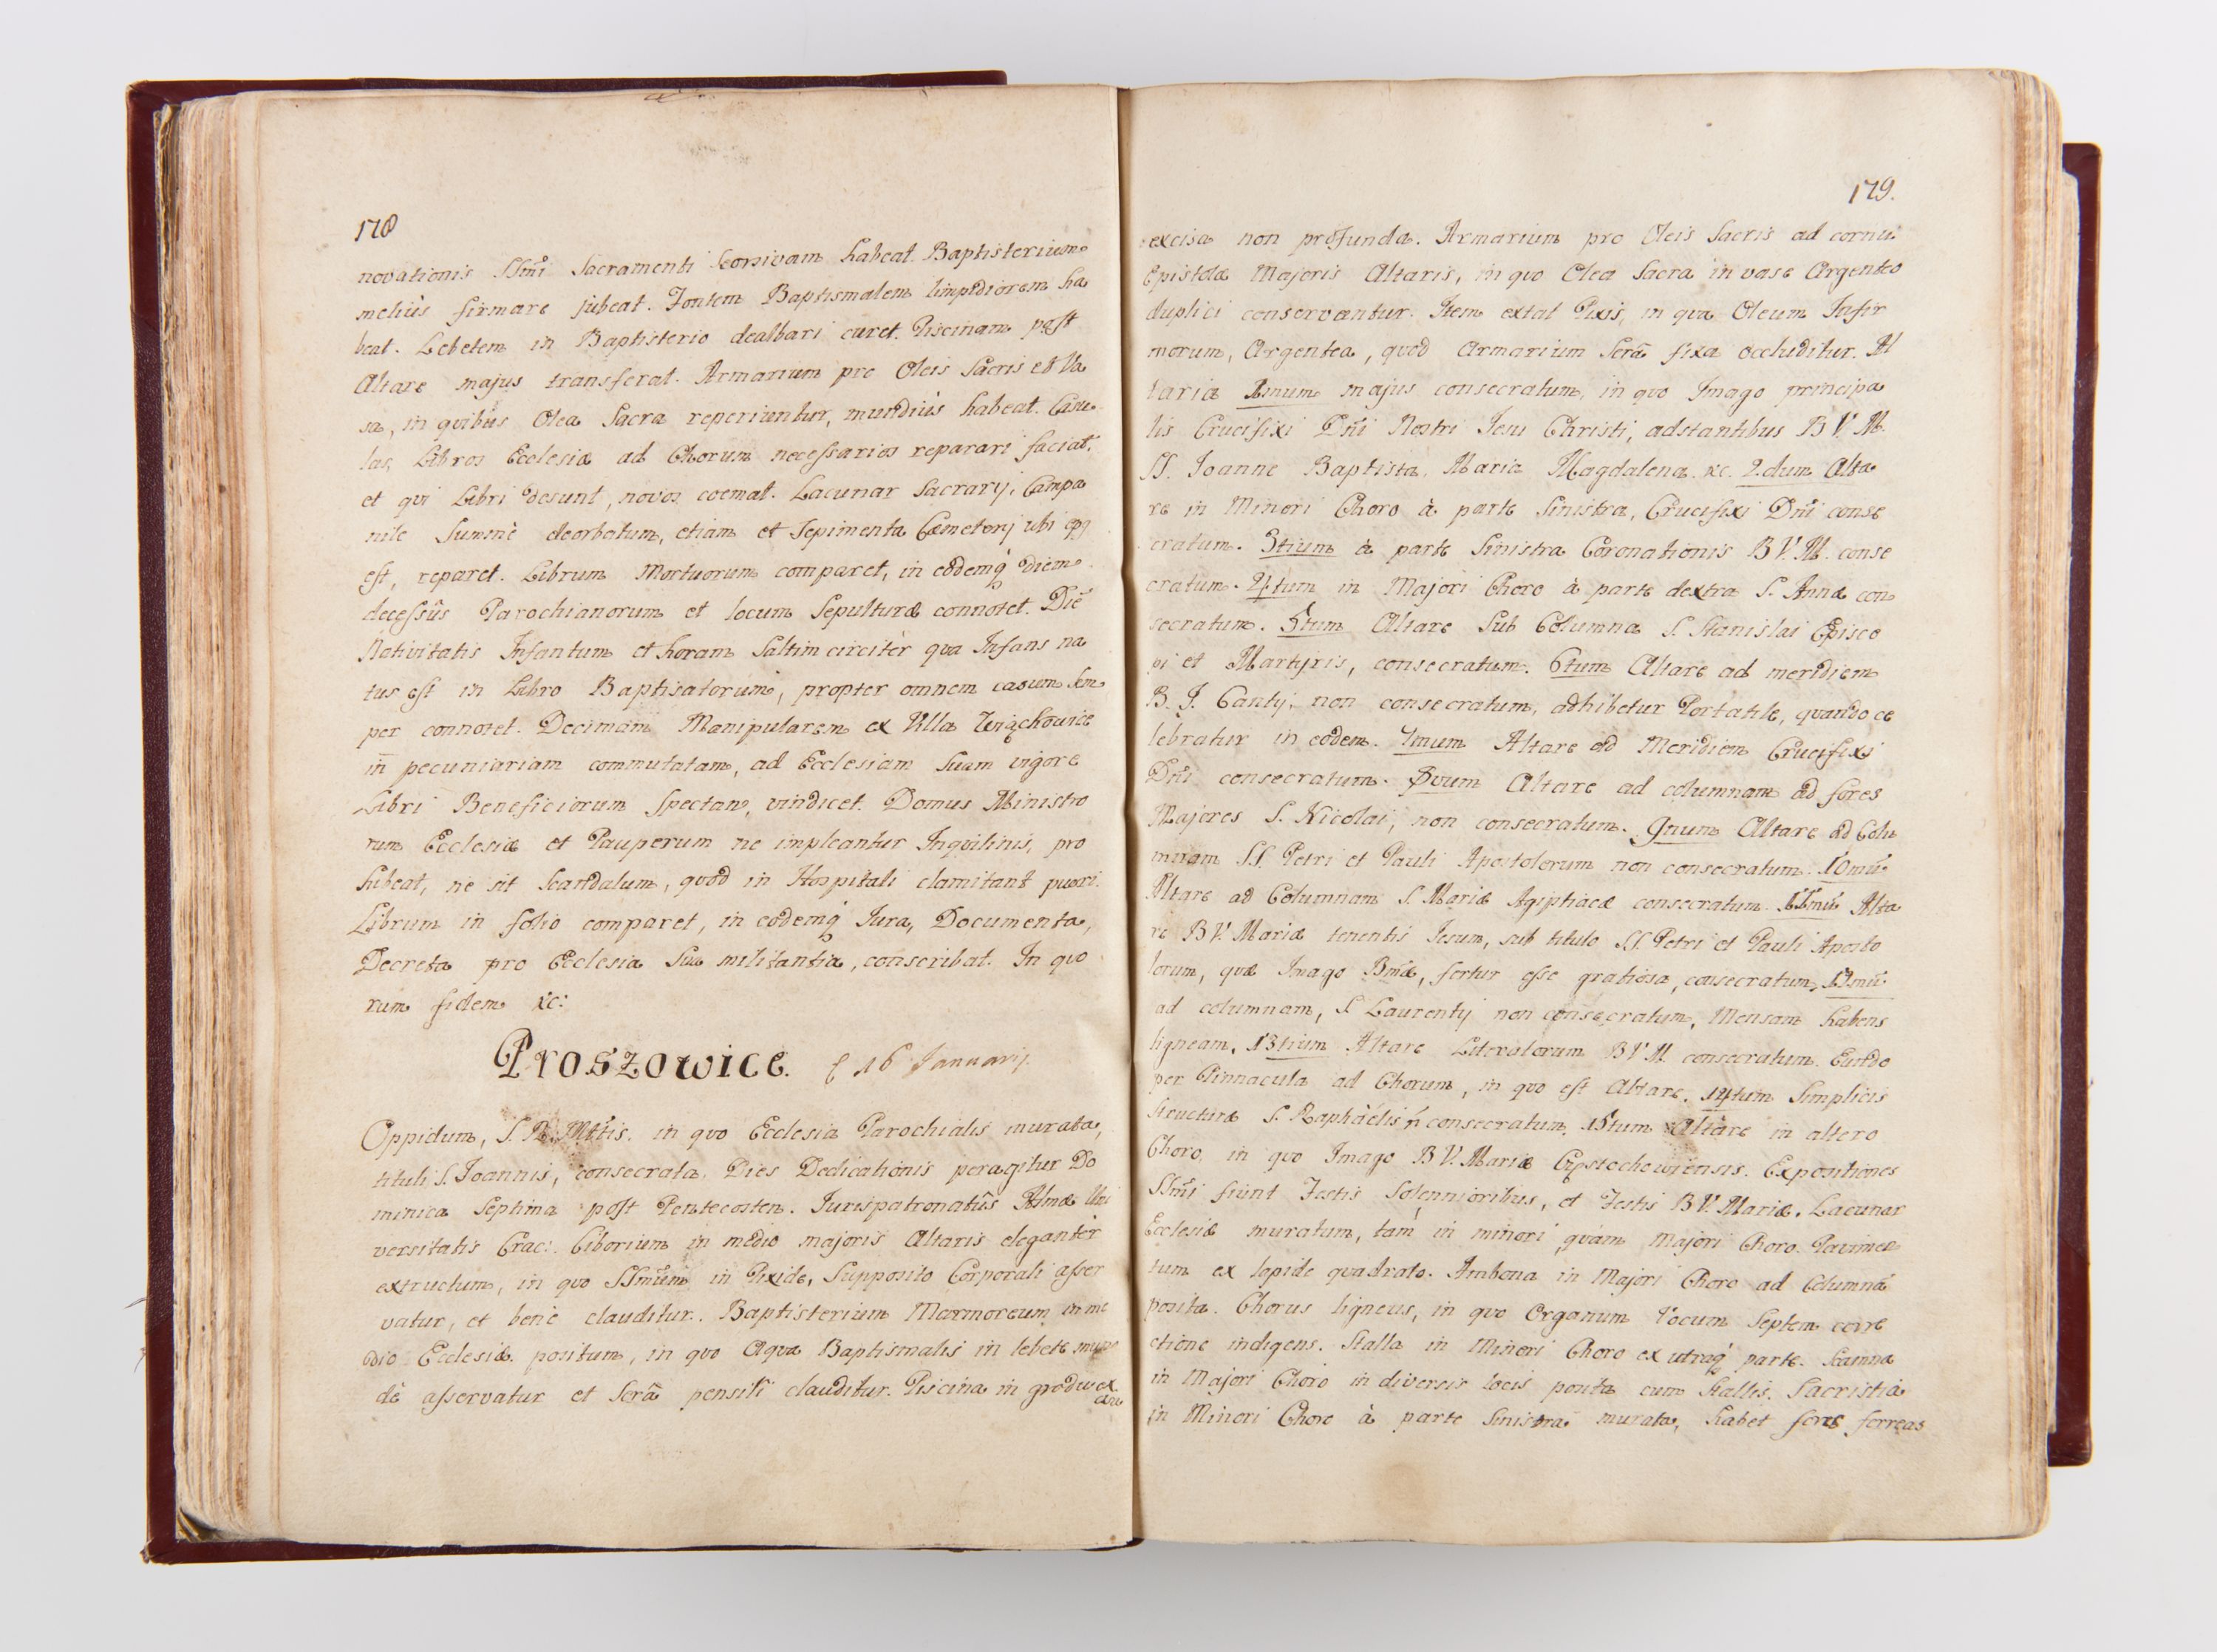 178
novationis SSmi Sacramenti seorsivam habeat. Baptisterium
meliùs firmare jubeat. Fontem Baptismalem limpidiorem ha
beat. Lebetem in Baptisterio dealbari curet. Piscinam post
Altare majus transferat. Armarium pro Oleis Sacris et Va
sa, in quibus Olea Sacra reperiuntur, mundiùs habeat. Casu
las, Libros Ecclesiæ ad Chorum necessarios reparari faciat,
et qui Libri desunt, novos coemat. Lacunar Sacrarij, Campa
nile Summè deorbatum, etiam et Sepimenta Cæmeterij ubi opq
est, reparet. Librum Mortuorum comparet, in eodemq́ diem
decessûs Parochianorum et locum Sepulturæ connotet. Diē
Nativitatis Infantum et horam Saltim circitèr qua Infans na
tus est in Libro Baptisatorum, propter omnem casum Sem
per connotet. Decimam Manipularem ex Villa Wiąckowice
in pecuniariam commutatam, ad Ecclesiam Suam vigore
Libri Beneficiorum Spectan, vindicet. Domus Ministro
rum Ecclesiæ et Pauperum ne impleantur Inquilinis, pro
hibeat, ne sit Scandalum, quod in Hospitali clamitant pueri.
Librum in folio comparet, in eodemq́ Jura, Documenta,
Decreta pro Ecclesia Sua militantia, conscribat. In quo
rum fidem &c:
Proszowice. 16 Januarij.
Oppidum, S. R. Mttis. in quo Ecclesia Parochialis murata,
tituli S. Joannis, consecrata. Dies Dedicationis peragitur Do
minica Septima post Pentecosten. Jurispatronatûs Almæ Uni
versitatis Crac: Ciborium in medio majoris Altaris eleganter
extructum, in quo SSmum in Pixide, Supposito Corporali asser
vatur, et benè clauditur. Baptisterium Marmoreum in me
dio Ecclesiæ positum, in quo Aqua Baptismalis in lebete mun
dè asservatur et Serâ pensili clauditur. Piscina in gradu ex
179.
excisa non profunda. Armarium pro Oleis Sacris ad cornu
Epistolæ Majoris Altaris, in quo Olea Sacra in vase Argenteo
duplici conservantur. Item extat Pixis, in qua Oleum Infir
morum, Argentea, quod Armarium Serâ fixa occluditur. Al
taria 1mum majus consecratum, in quo Imago principa
lis Crucifixi Dni Nostri Jesu Christi, adstantibus B V. M.
SS. Joanne Baptista, Maria Magdalena &c. 2dum Alta
re in Minori Choro à parte Sinistra, Crucifixi Dni conse
cratum. 3tium à parte Sinistra Coronationis B V. M. conse
cratum. 4tum in Majori Choro à parte dextra S. Annæ con
secratum. 5tum Altare Sub Columna S. Stanislai Episco
pi et Martyris, consecratum. 6tum Altare ad meridiem
B. J. Cantij, non consecratum, adhibetur Portatile, quando ce
lebratur in eodem. 7mum Altare ad Meridiem Crucifixi
Dni consecratum. 8vum Altare ad columnam ad fores
Majores S. Nicolai, non consecratum. 9num Altare ad Colu
mnam SS. Petri et Pauli Apostolorum non consecratum. 10mū
Altare ad Columnam S. Mariæ Agiptiacæ consecratum. 11mū Alta
re B V. Mariæ tenentis Jesum, sub titulo SS. Petri et Pauli Aposto
lorum, quæ Imago Bmæ, fertur esse gratiosa, consecratum. 12mū
ad columnam, S. Laurentij non consecratum, Mensam habens
ligneam. 13tium Altare Literatorum B V M consecratum. Eundo
per Pinnacula ad Chorum, in quo est Altare. 14tum Simplicis
Structuræ S. Raphaëlis n̄ consecratum. 15tum Altare in altero
Choro, in quo Imago B V. Mariæ Częstochoviensis. Expositiones
SSmi fiunt Festis Solennioribus, et Festis B V. Mariæ. Lacunar
Ecclesiæ muratum, tam in minori, quàm Majori Choro. Pavimen
tum ex lapide quadrato. Ambona in Majori Choro ad Columnā
posita. Chorus ligneus, in quo Organum Vocum Septem corre
ctione indigens. Stalla in Minori Choro ex utraq́ parte. Scamna
in Majori Choro in diversis locis posita cum Stallis. Sacristia
in Minori Choro à parte Sinistra murata, habet fores ferreas